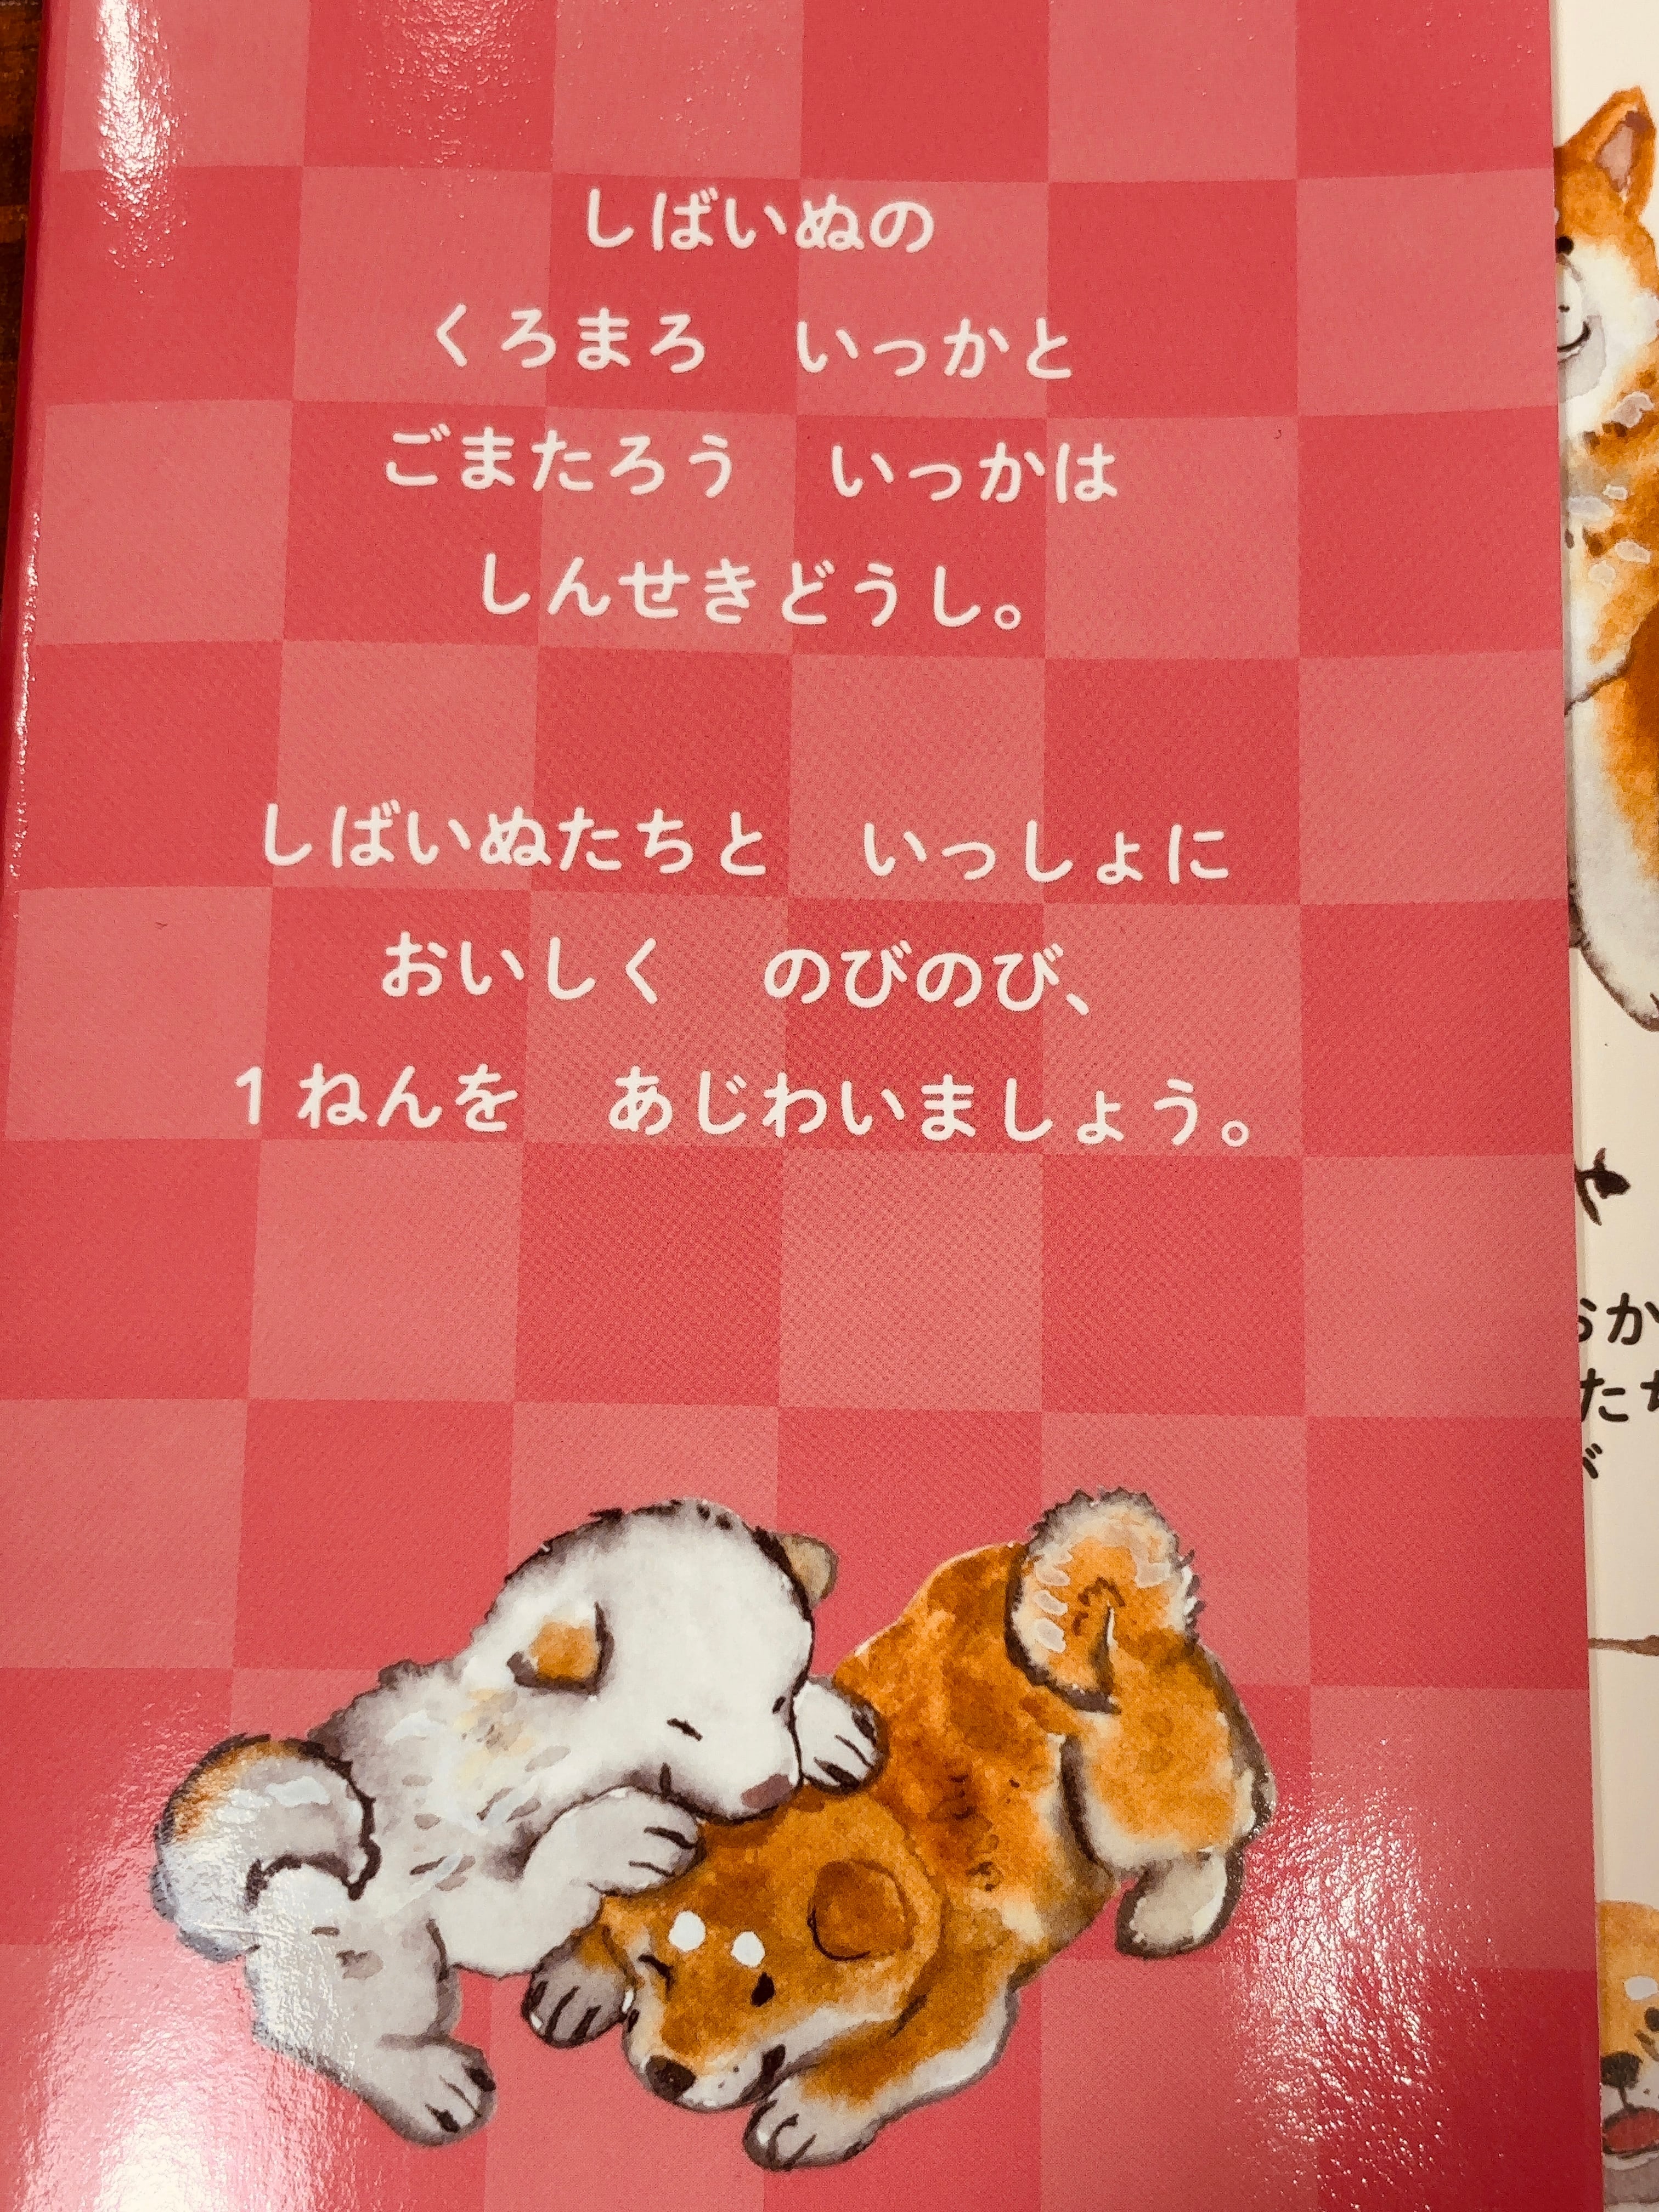 しばいぬの
くろまろ　いっかと
ごまたろう　いっかは
しんせきどうし。
しばいぬたちと　いっしょに
おいしく　のびのび、
1ねんを　あじわいましょう。
や
おか
たち